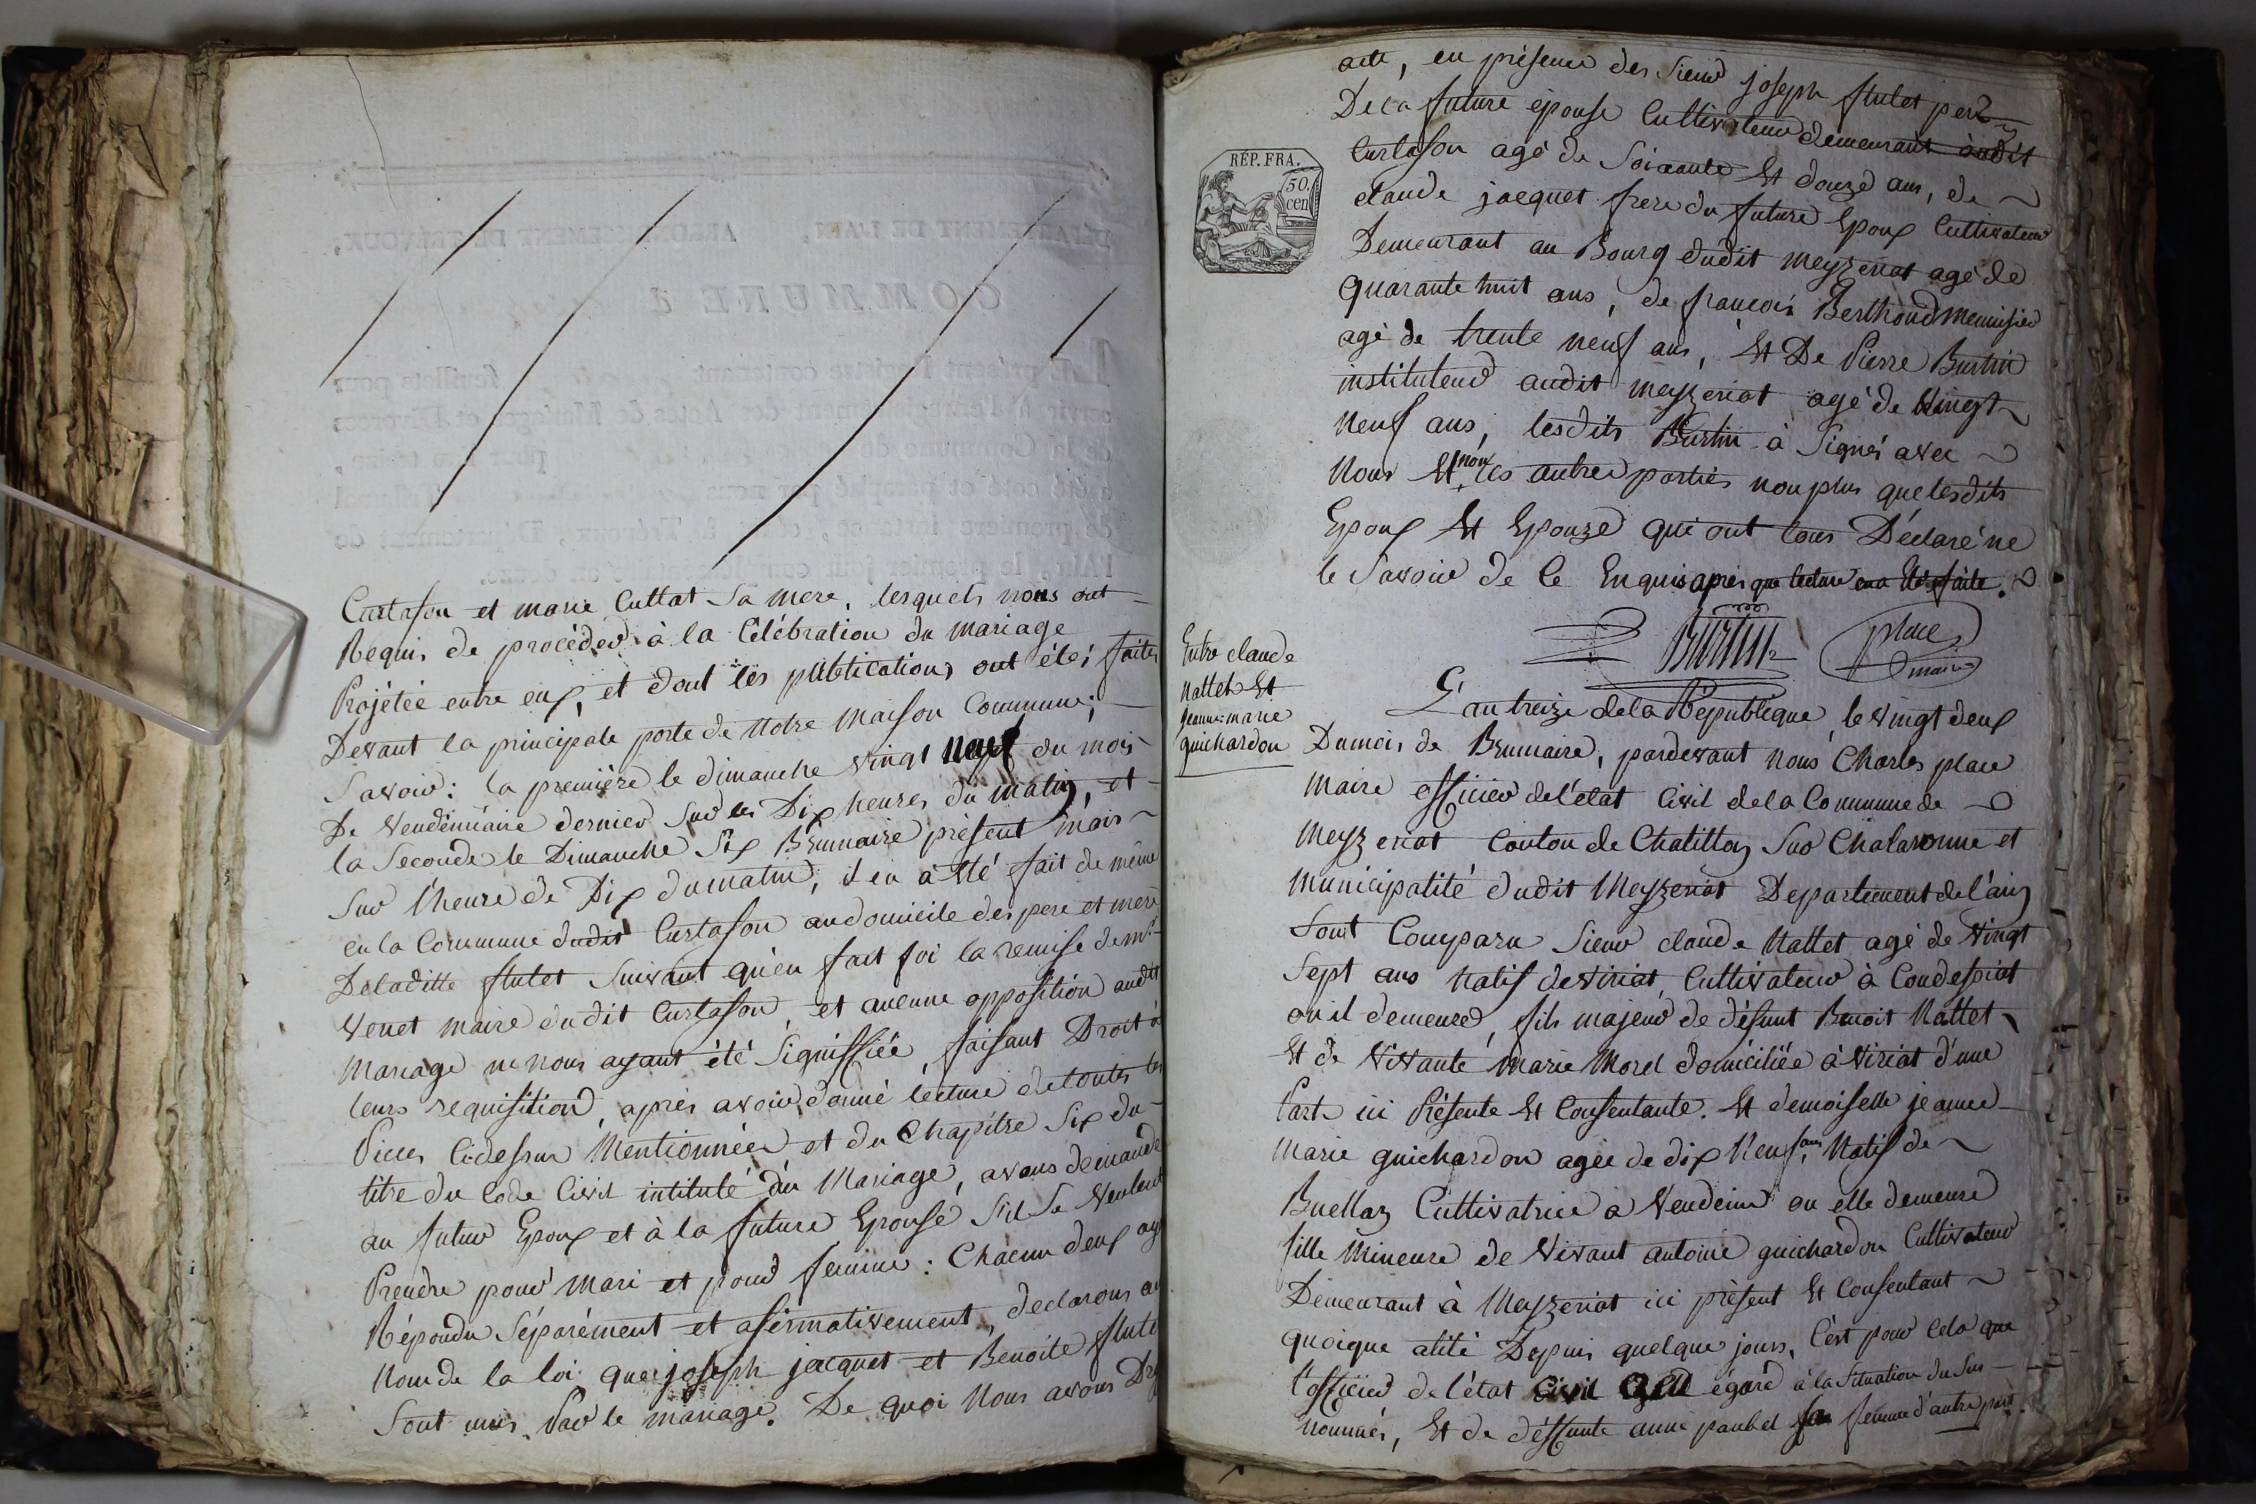 Curtafon et marie Cuttat Sa mere, lesquels nous ont
Requis de procéder à la Célébration du mariage
Projétée entre eux, et dont les publications ont étés faites
Devant la principale porte de Notre Maison Commune;
Savoir: la première le dimanche vingt neuf du mois
De Vendémiaire dernier Sur les Dix heures du matin, et
la Seconde le Dimanche Six Brumaire présent mois
Sur l'heure de Dix du matin, il en à été fait de même
en la Commune dudit Curtafon au domicile des pere et mere
Deladitte flutet Suivant qu'en fait foi la remise de mr
Venet maire dudit Curtafon, et aucune opposition audit
Mariage ne nous ayant été Signiffiée, faisant Droit à
leurs requisition, après avoir donné lecture de toutes les
Pieces Cidessus Mentionnées et du Chapitre Six du
titre du Code Civil intitulé du Mariage, avons demandé
au futur Epoux et à la future Epouse Sils Se Veulent
Prendre pour Mari et pour femme: Chacun deux aya
Répondu Séparément et afirmativement, declarons au
Nom de la loi que joseph jacquet et Benoite flute
Sont unis Par le mariage. De quoi Nous avons Dre
RÉP. FRA.
50
cen
acte, en présence des Sieurs joseph flutet pere
De la future épouse Cultivateur demeurant audit
Curtafon agé de Soixante Et douze ans, de
claude jacquet frere du future Epoux Cultivateur
Demeurant au Bourg dudit Meyzeriat agé de
Quarante huit ans, de françois Berthoud Menuisier
agé de trente neuf ans, Et De Pierre Burtin
instituteur audit meyzeriat agé de Vingt
Neuf ans, lesdits Burtin à Signé avec
Nous Et non les autres parties non plus que lesdits
Epoux Et Epouze qui ont tous Déclaré ne
le Savoir de ce Enquis après que lecture en a Été faite.
Burtin
place
maire
Entre claude
Nattet Et
jeanne-marie
guichardon
L'an treize de la République, le vingt deux
Du mois de Brumaire, pardevant nous Charles place
Maire officier de l'état Civil de la Commune de
Meyzeriat Canton de Chatillon Sur Chalaronne et
Municipalité dudit Meyzeriat Departement de l'ain
Sont Comparu Sieur claude Nattet agé de Vingt
Sept ans Natif de Viriat, Cultivateur à Condessiat
ou il demeure, fils majeur de défunt Benoit Nattet
Et de Vivante Marie Morel domiciliée à Viriat d'une
Part ici Présente Et Consentante. Et demoiselle jeanne
Marie guichardon agée de dix Neuf ans, Natif de
Buellas Cultivatrice a Vandeins ou elle demeure
fille Mineure de Vivant antoine guichardon Cultivateur
Demeurant à Meyzeriat ici présent Et Consentant
quoique alité Depuis quelque jours, C'est pour Cela que
l'officier de l'état Civil égard à la Situation du Sus
nommés, Et de déffunte anne paubel sa femme d'autre part.